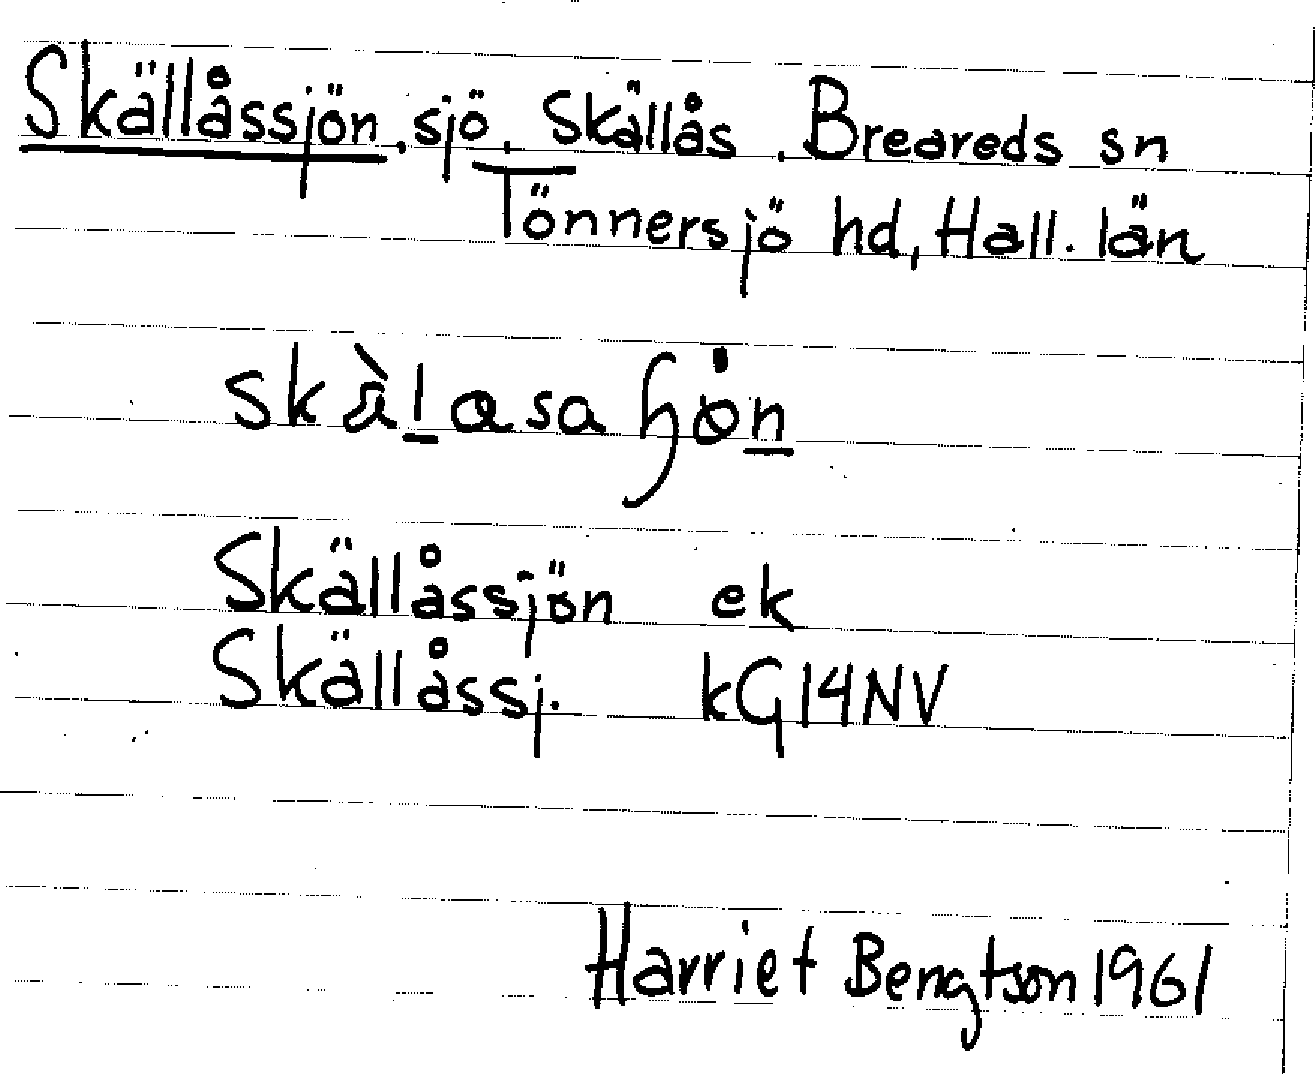 Skällåssjön, sjö, Skällås, Breareds sn
Tönnersjö hd, Hall. län
Skällåssjön ek
Skällåssj. kG14NV
Harriet Bengtson 1961